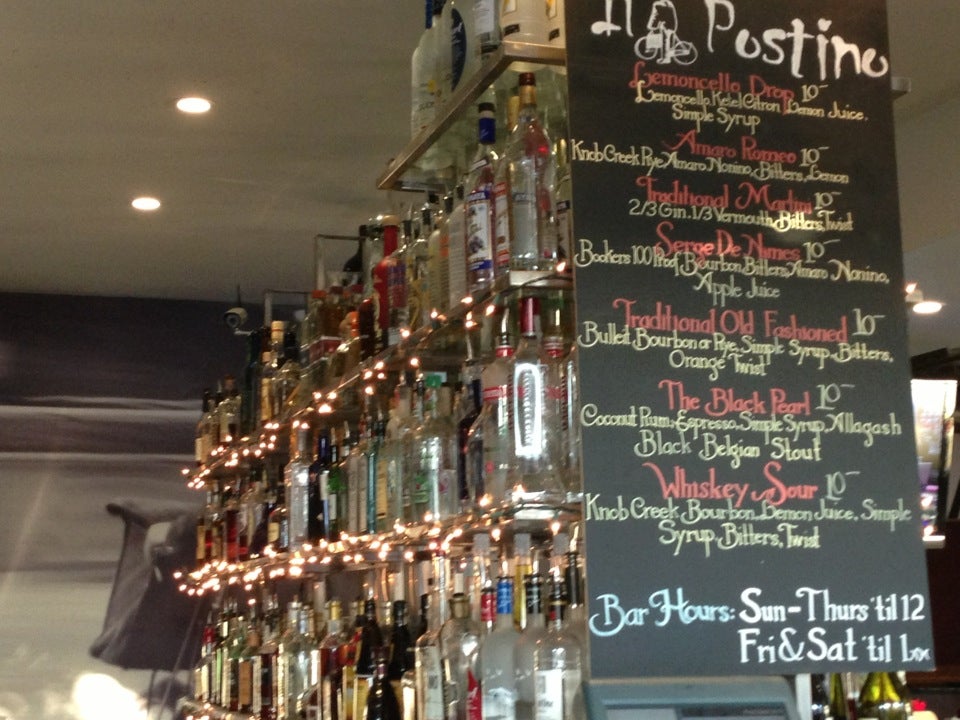 Il Postino
Lemoncello Drop 10-
Lemoncello, Ketel Citron, Lemon Juice,
Simple Syrup
Amaro Romeo 10-
Knob Creek Rye, Amaro Nonino, Bitters, Lemon
Traditional Martini 10-
2/3 Gin. 1/3 Vermouth, Bitters, Twist
Serge De Nimes 10-
Bookers 100 Proof Bourbon, Bitters, Amaro Nonino,
Apple Juice
Traditional Old Fashioned 10-
Bulleit Bourbon or Rye, Simple Syrup, Bitters,
Orange Twist
The Black Pearl 10-
Coconut Rum, Espresso, Simple Syrup, Allagash
Black Belgian Stout
Whiskey Sour 10-
Knob Creek Bourbon, Lemon Juice, Simple
Syrup, Bitters, Twist
Bar Hours: Sun-Thurs 'til 12
Fri & Sat 'til 1